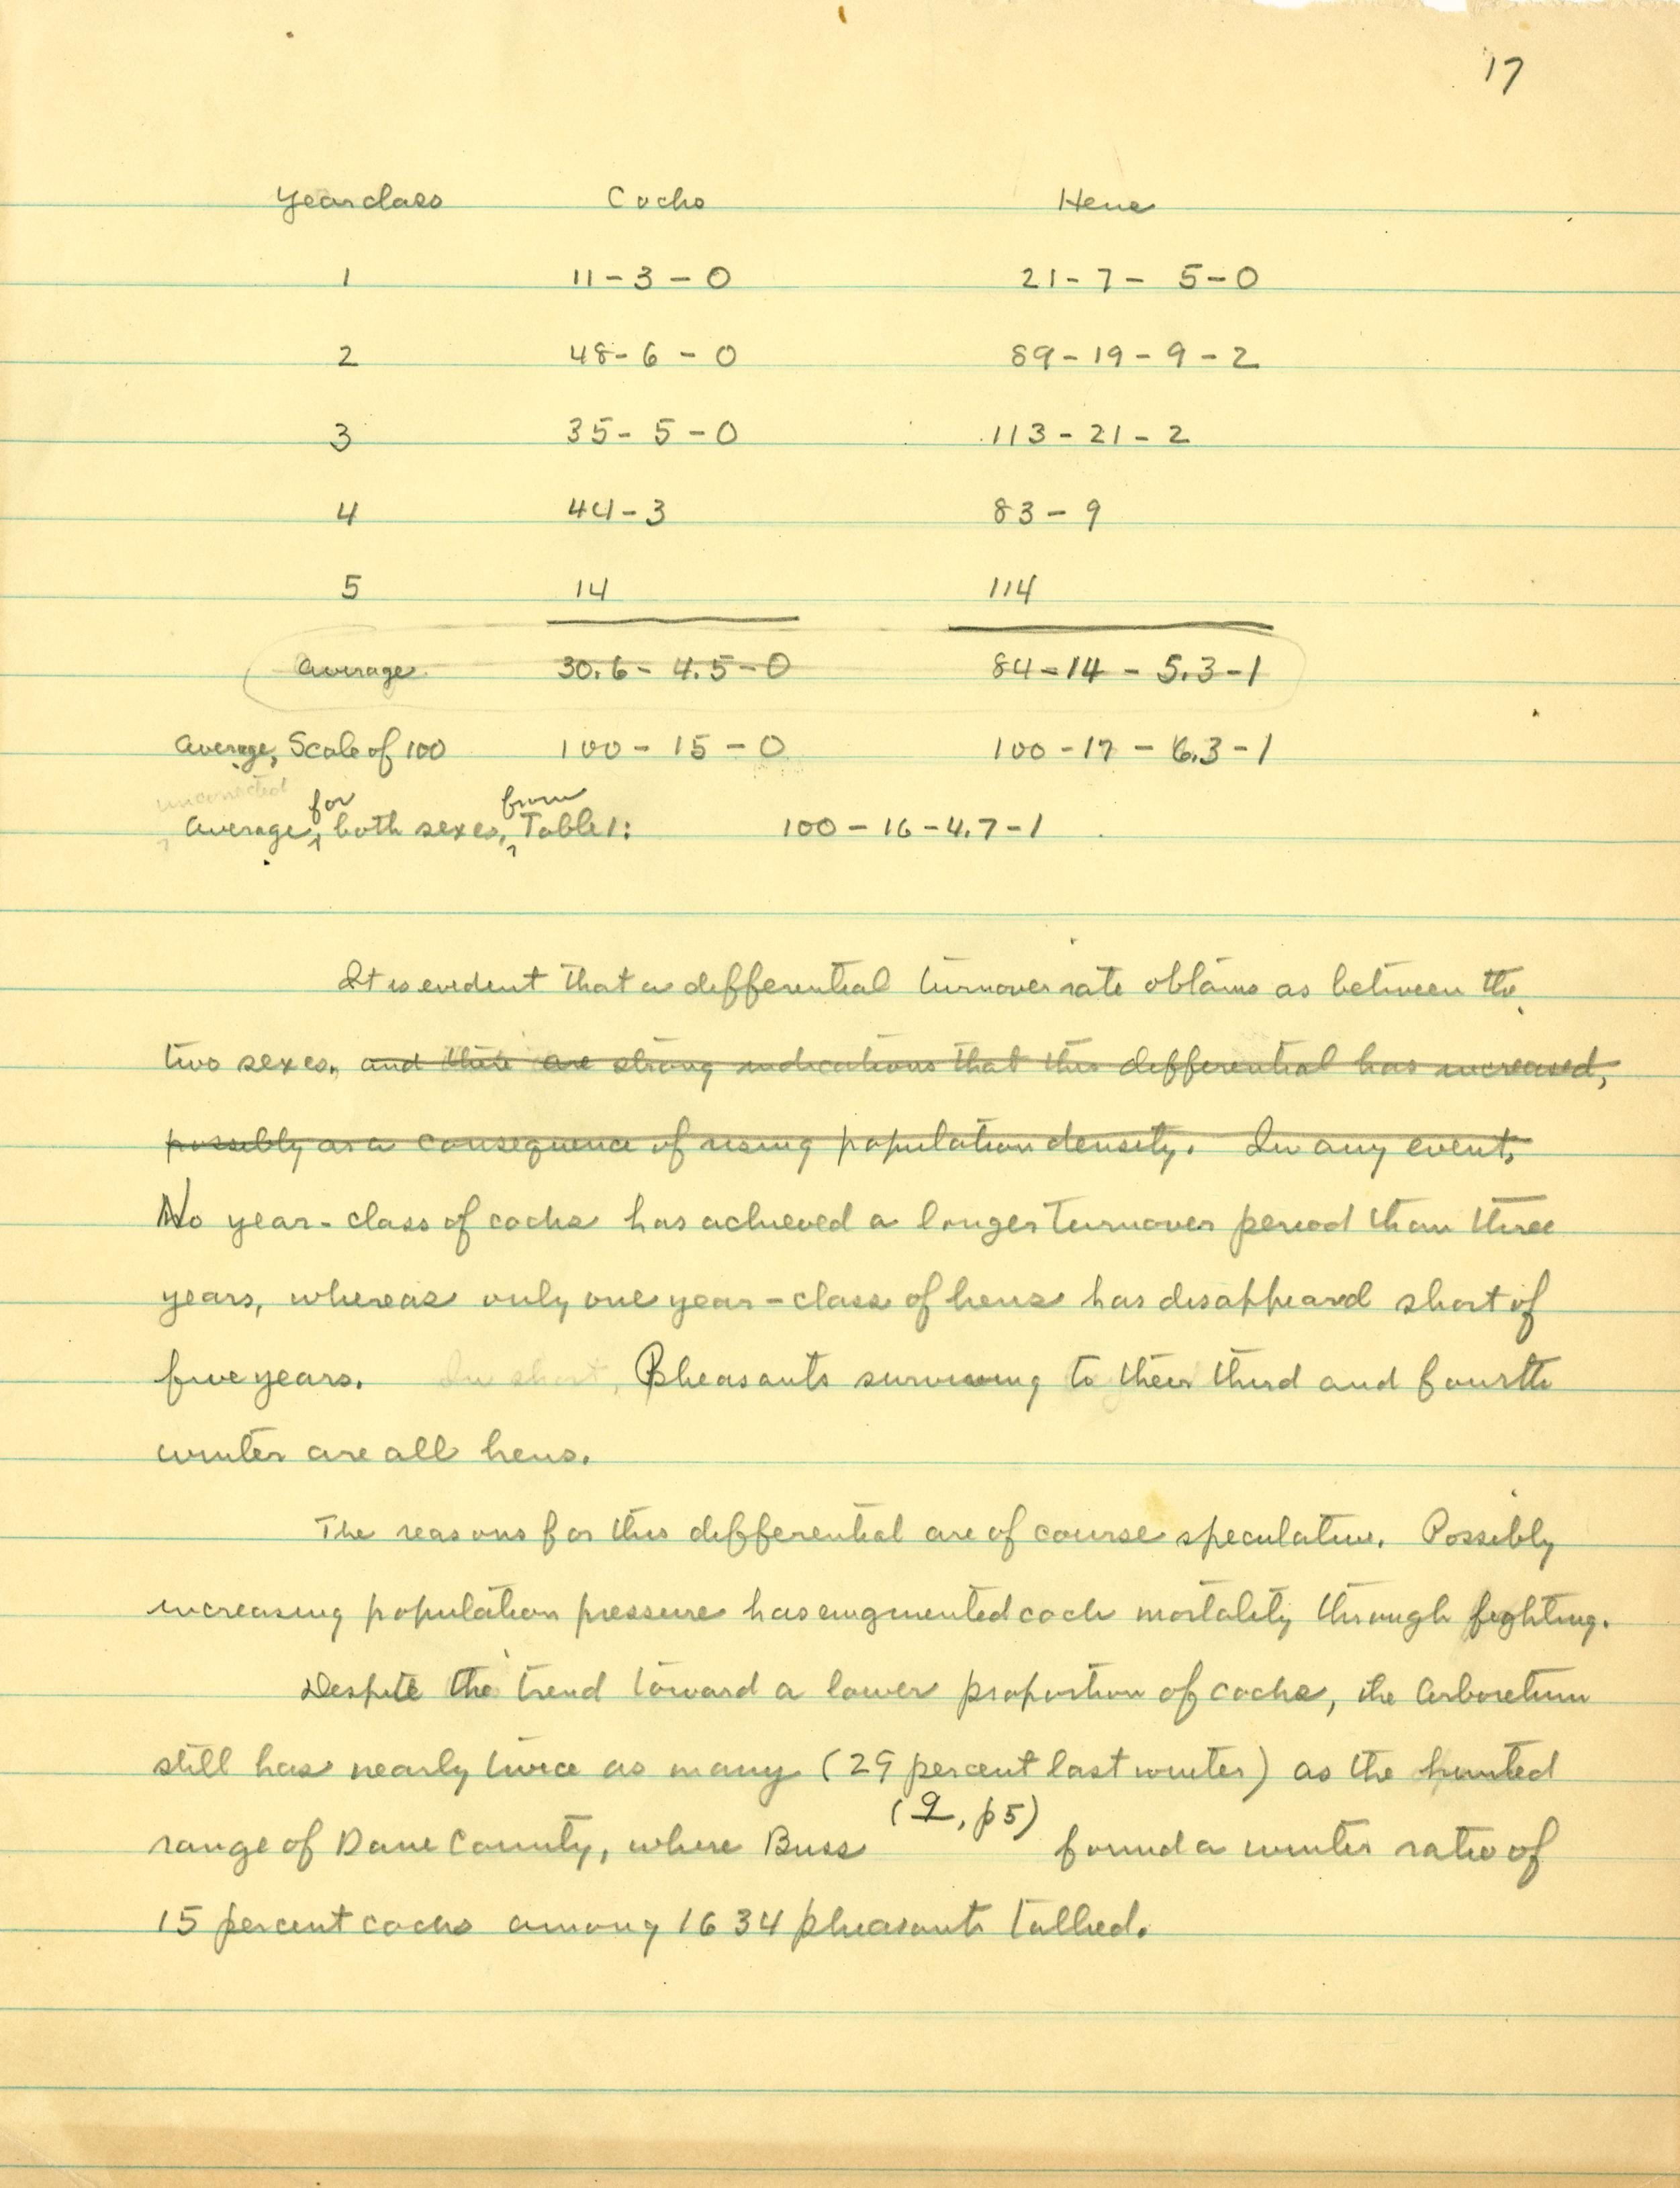 17
Yearclass Cocks Hens
1 11-3-0 21-7-5-0
2 48-6-0 89-19-9-2
3 35-5-0 113-21-2
4 44-3 83-9
5 14 114
Average 30.6-4.5-0 84-14-5.3-1
Average, Scale of 100 100-15-0 100-17-6.3-1
uncorrected for from
Average, both sexes, Table 1: 100-16-4.7-1
It is evident that a differential turnover rate obtains as between the
two sexes. and there are strong indications that this differential has increased,
possibly as a consequence of rising population density. In any event,
No year-class of cocks has achieved a longer turnover period than three
years, whereas only one year-class of hens has disappeared short of
five years. In short, Pheasants surviving to their third and fourth
winter are all hens.
The reasons for this differential are of course speculative. Possibly
increasing population pressure has augmented cock mortality through fighting.
Despite the trend toward a lower proportion of cocks, the Arboretum
still has nearly twice as many (29 percent last winter) as the hunted
(9, p5)
range of Dane County, where Buss found a winter ratio of
15 percent cocks among 1634 pheasants tallied.